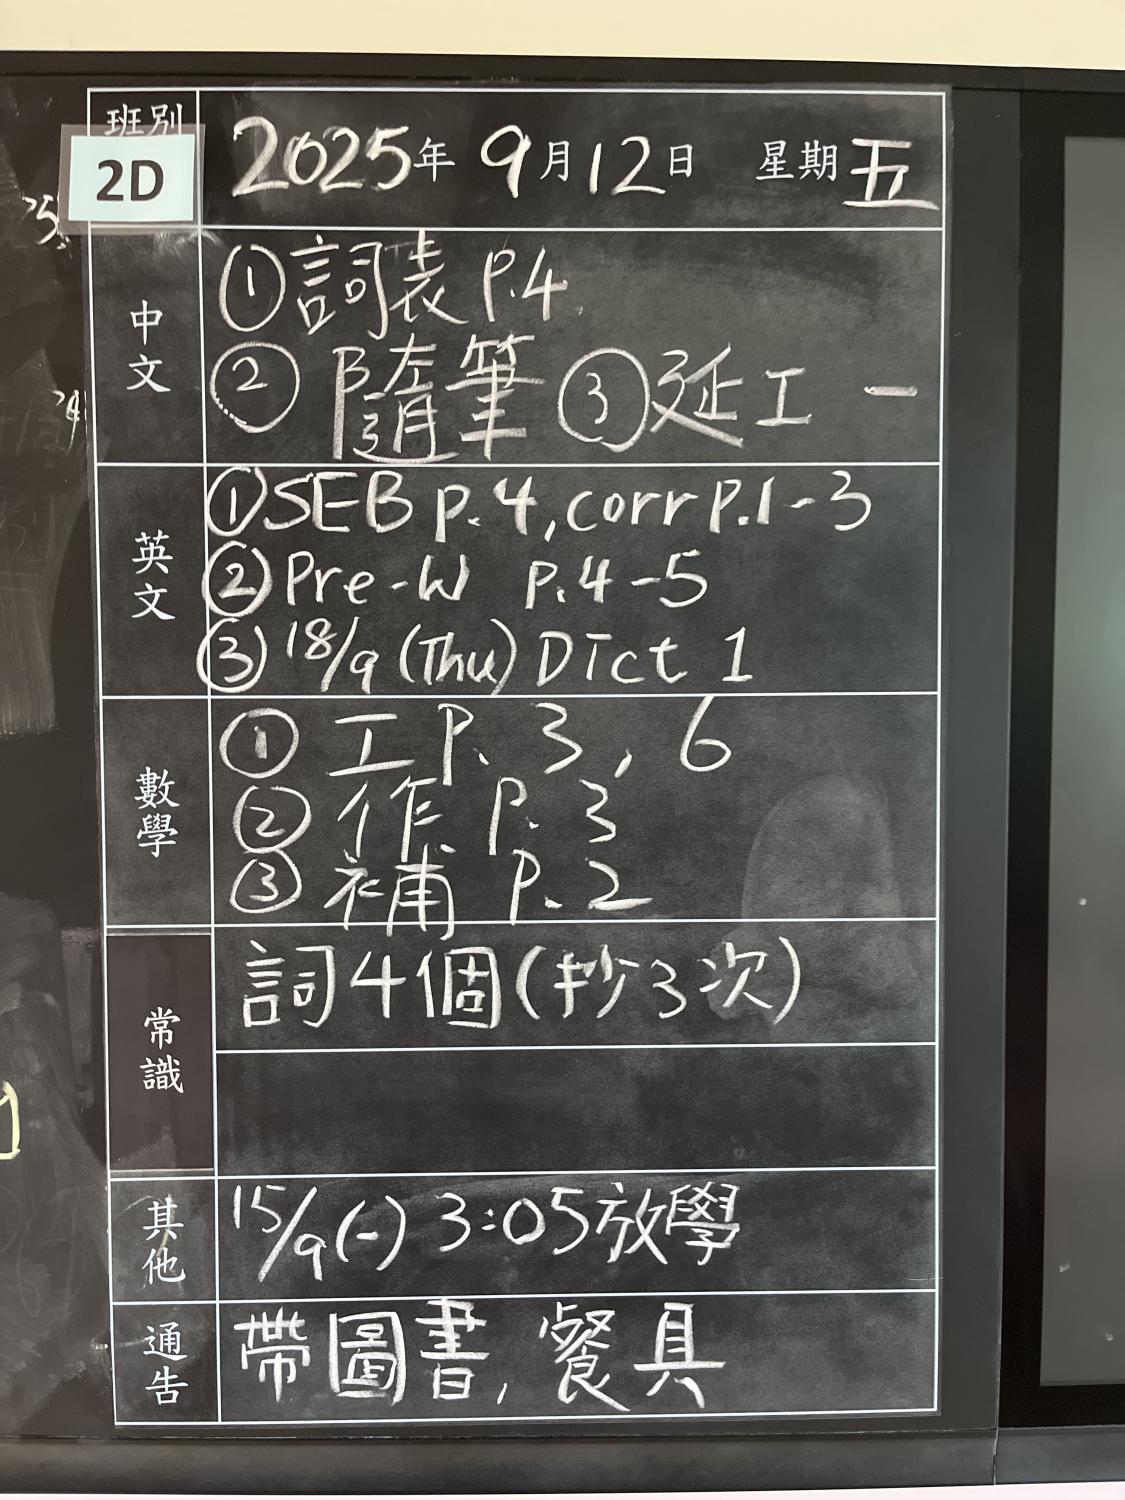 班別
2D
2025年 9月12日 星期五
中文
①詞表 P.4
②隨筆 ③延工一
英文
①SEB p.4, corr P.1-3
②Pre-W P.4-5
③18/9 (Thu) Dict 1
數學
①工 P. 3, 6
②作 P. 3
③補 P. 2
常識
詞4個(抄3次)
其他
15/9(一) 3:05放學
通告
帶圖書, 餐具